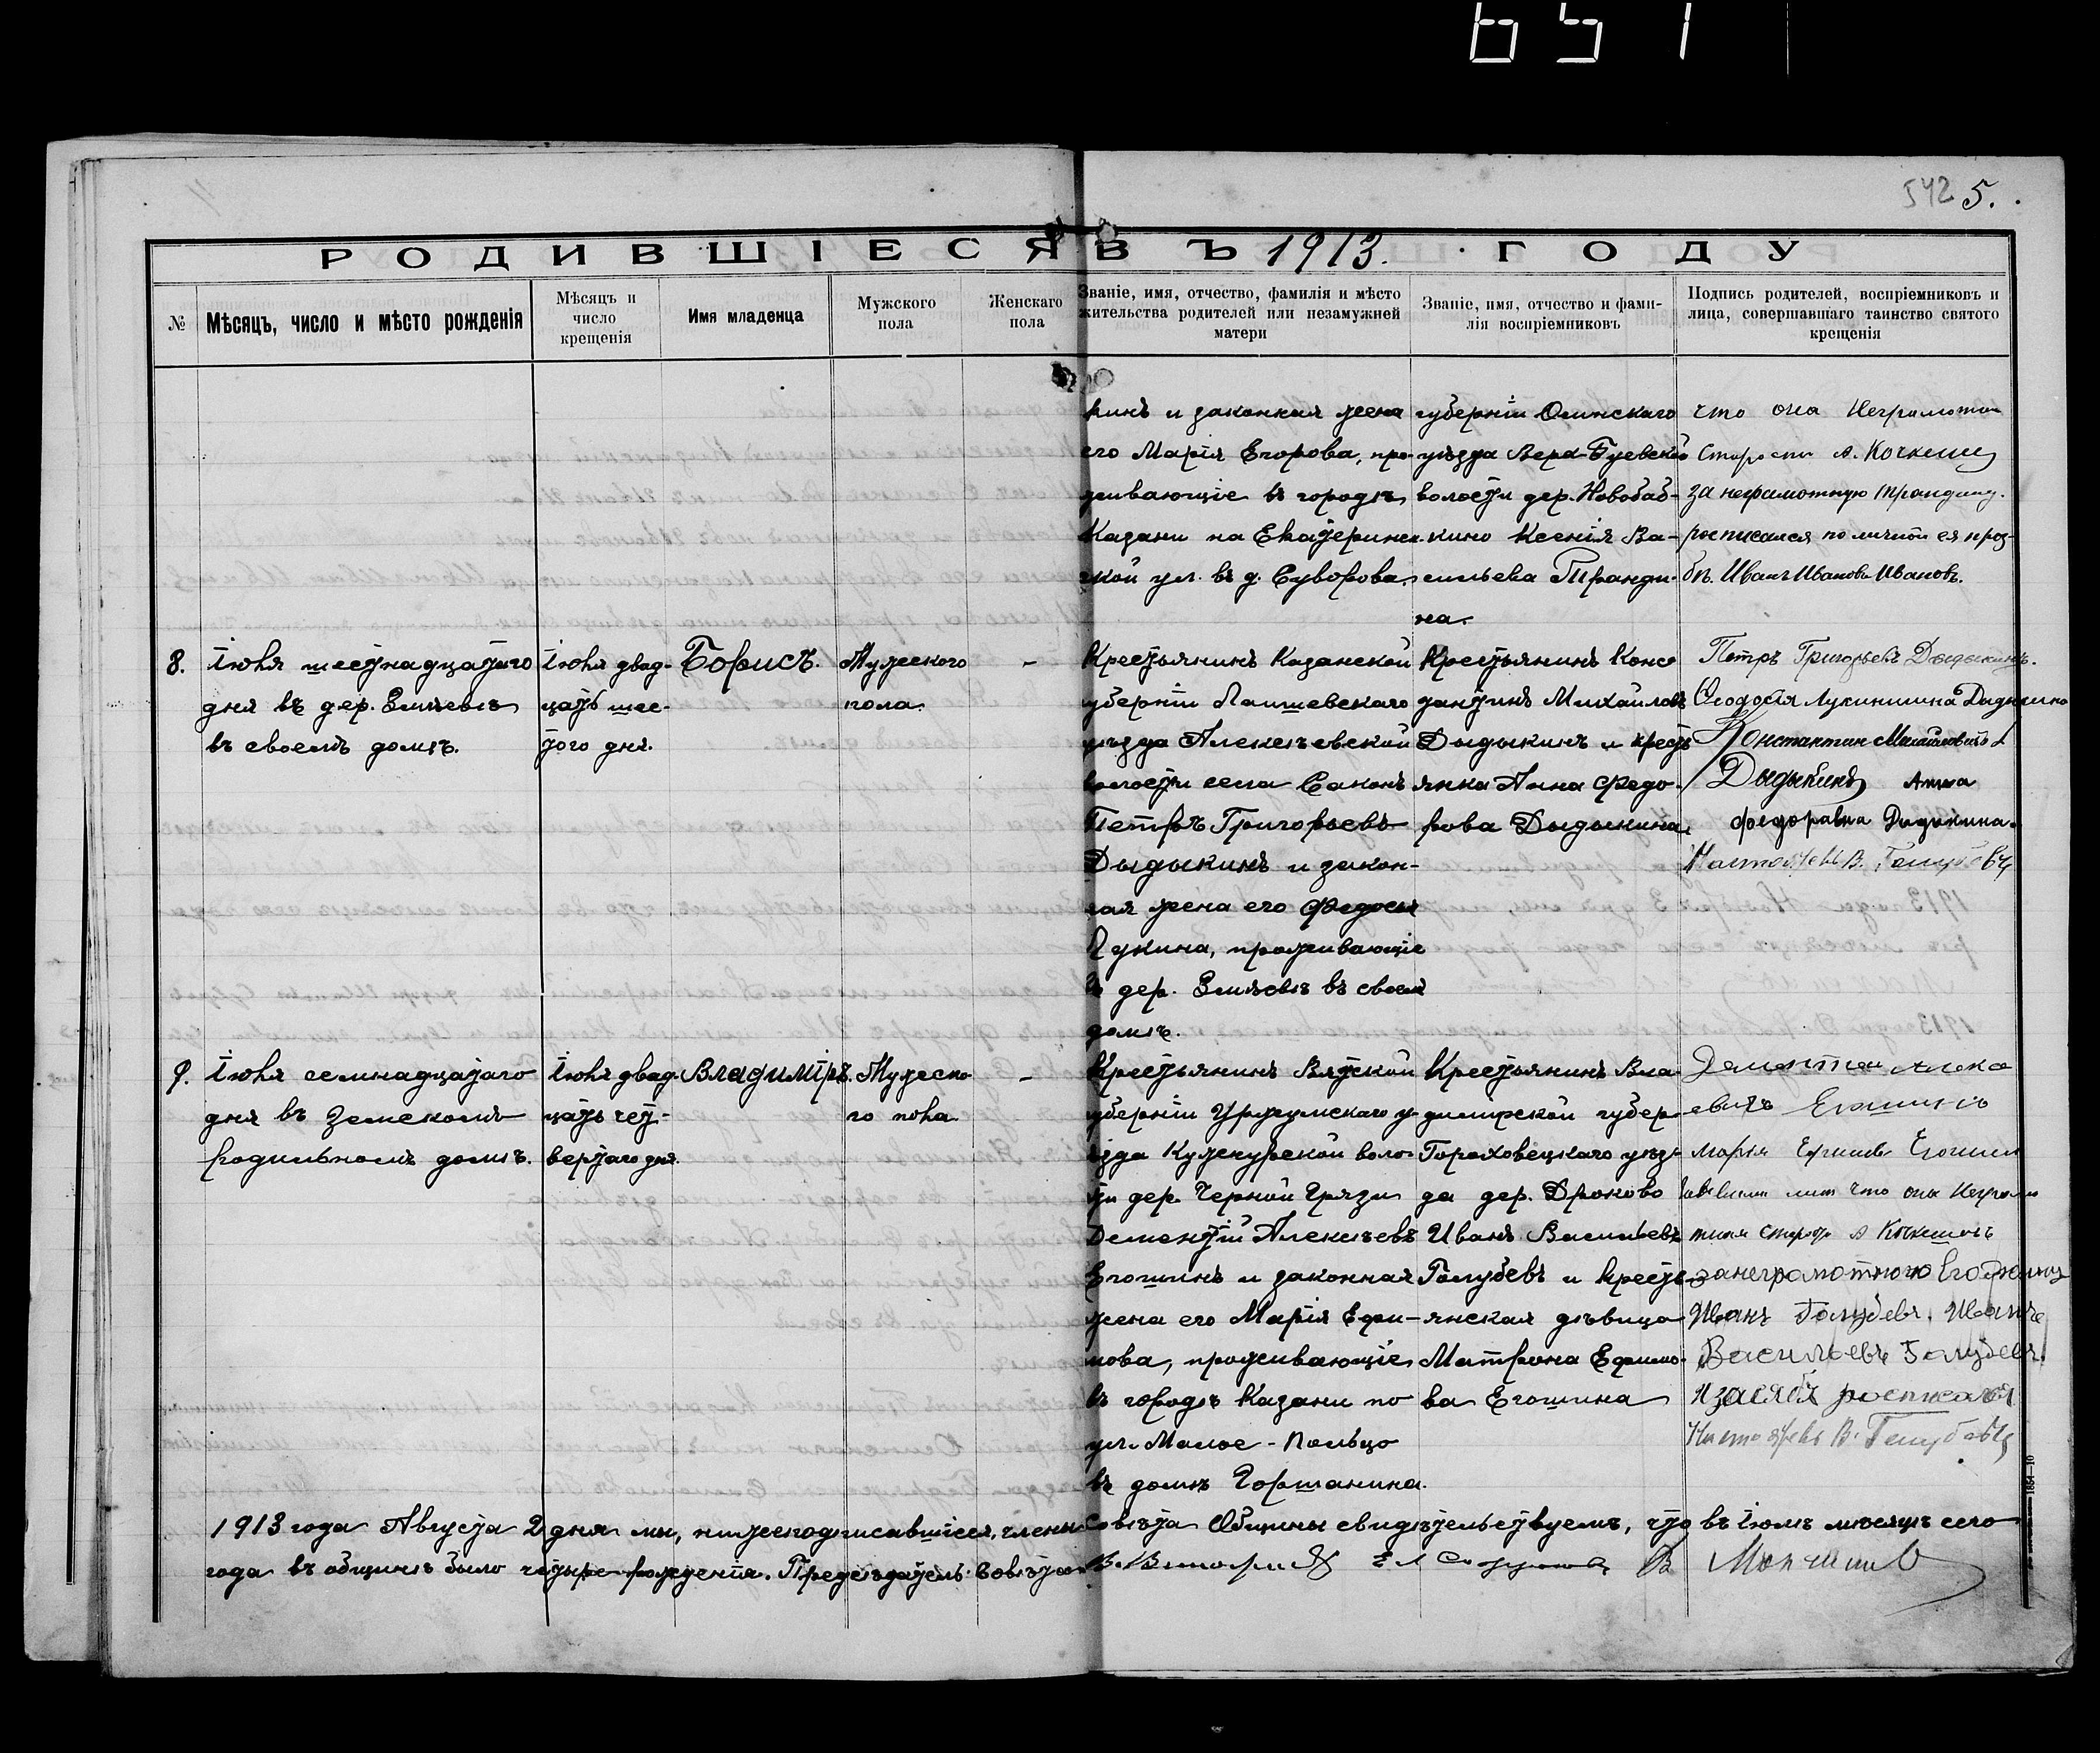 651
542 5.
РОДИВШІЕСЯ ВЪ 1913. ГОДУ
№
Мѣсяцъ, число и мѣсто рожденія
Мѣсяцъ и
число
крещенія
Имя младенца
Мужского
пола
Женскаго
пола
Званіе, имя, отчество, фамилія и мѣсто
жительства родителей или незамужней
матери
Званіе, имя, отчество и фами-
лія воспріемниковъ
Подпись родителей, воспріемниковъ и
лица, совершавшаго таинство святого
крещенія
кинъ и законная жена
его Марія Егорова, про-
живающіе въ городѣ
Казани на Екатеринин-
ской ул. въ д. Суворова.
губерніи Осинскаго
уѣзда Верх-Буевской
волости дер. Новобаб-
кино Ксенія Ва-
сильева Трянди-
на.
что она Неграмотна
Староста А.
за неграмотную
росписался по личной ея прозь-
бѣ. Иванъ Ивановъ Ивановъ.
8.
Іюня шестнадцатаго
дня въ дер.
въ своемъ домѣ.
Іюня двад-
цать шес-
того дня.
Борисъ.
Мужеского
пола.
-
Крестьянинъ Казанской
губерніи Лаишевскаго
уѣзда Алексѣевской
волости села Саконъ
Петръ Григорьевъ
Дыдыкинъ и закон-
ная жена его Федосья
Лукина, проживающіе
въ дер. въ своемъ
домѣ.
Крестьянинъ Конс-
тантинъ Михаиловъ
Дыдыкинъ и крестъ-
янка Анна Федо-
рова Дыдыкина.
Петръ Григорьевъ Дыдыкинъ.
Феодосія Лукинишна Дыдыкина
Константин Михаиловичъ
Дыдыкинъ Анна
Федоравна Дыдыкина.
В. Голубевъ
9.
Іюня семнадцатаго
дня въ Земскомъ
Родильномъ домѣ.
Іюня двад-
цать чет-
вертаго дня.
Владиміръ.
Мужеско-
го пола
-
Крестьянинъ Вятской
губерніи Уржумскаго у-
ѣзда Кужнурской воло-
сти дер. Черной Грязи
Дементій Алексѣевъ
Егошинъ и законная
жена его Марія Ефи-
мова, проживающіе
въ городѣ Казани по
ул. Малое-Кольцо
въ домѣ Горшанина.
Крестьянинъ Вла-
димирской губер.
Гороховецкаго уѣз-
да дер. Дроково
Иванъ Васильевъ
Голубевъ и крестъ-
янская дѣвица
Матрона Ефимо-
ва Егошина
Дементеи
Егошинъ
Марія Егошин
что она Неграмо
А
за неграмотною Егошину
Иванъ Голубевъ. Иванъ
Васильевъ Голубевъ.
И засябя росписался
В. Голубевъ
1913 года Августа 2 дня мы, нижеподписавшіеся, члены Совѣта Общины свидѣтельствуемъ, что въ Іюнѣ мѣсяцѣ сего
года въ общинѣ было четыре рожденія. Предсѣдатель Совѣта